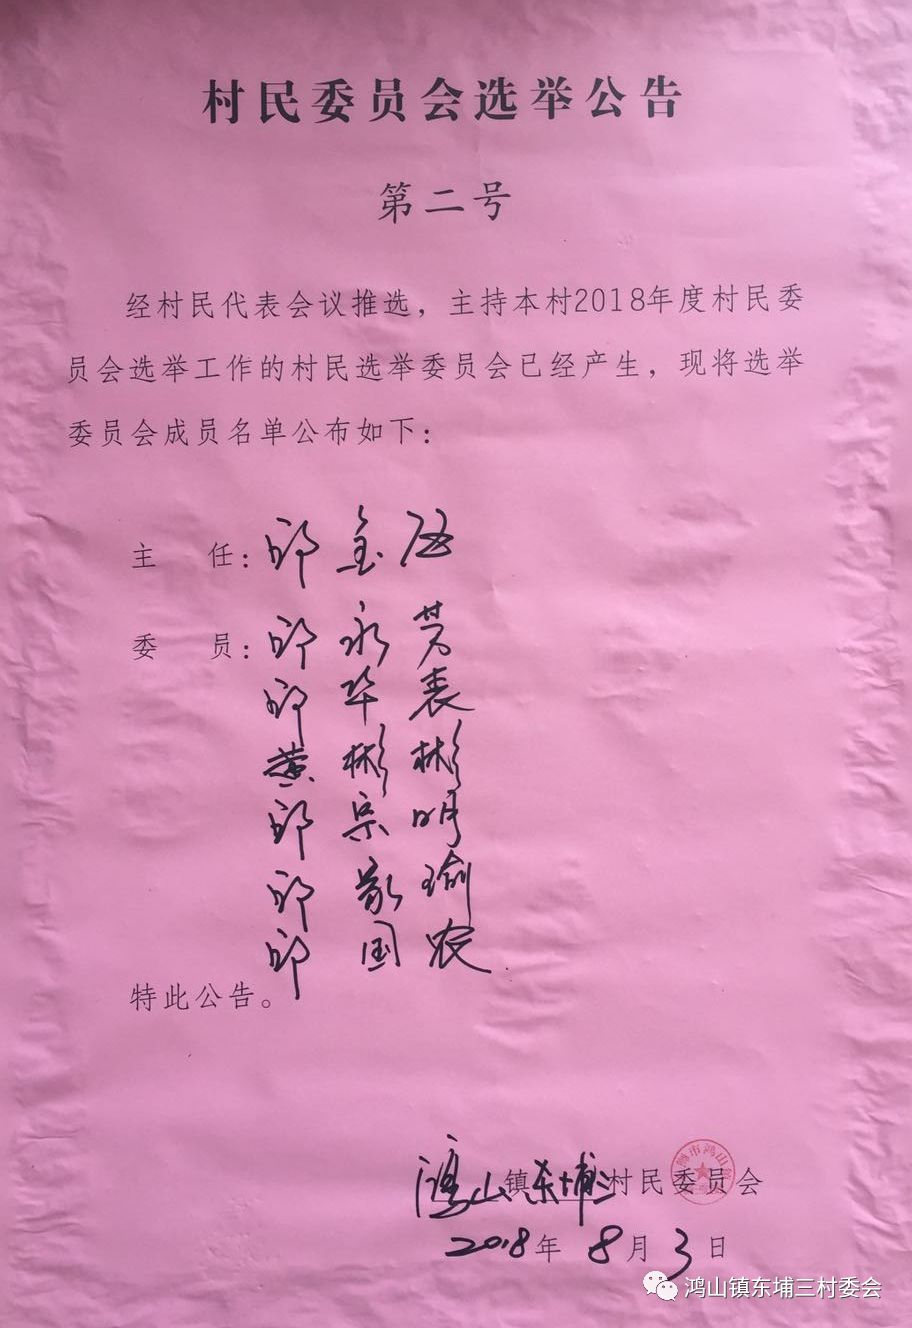 村民委员会选举公告
第二号
经村民代表会议推选，主持本村2018年度村民委
员会选举工作的村民选举委员会已经产生，现将选举
委员会成员名单公布如下：
主　任：邱金伍
委　员：邱永芳
邱华表
黄彬彬
邱宗明
邱瑜
邱国农
特此公告。
鸿山镇东埔三村民委员会
2018年8月3日
鸿山镇东埔三村委会